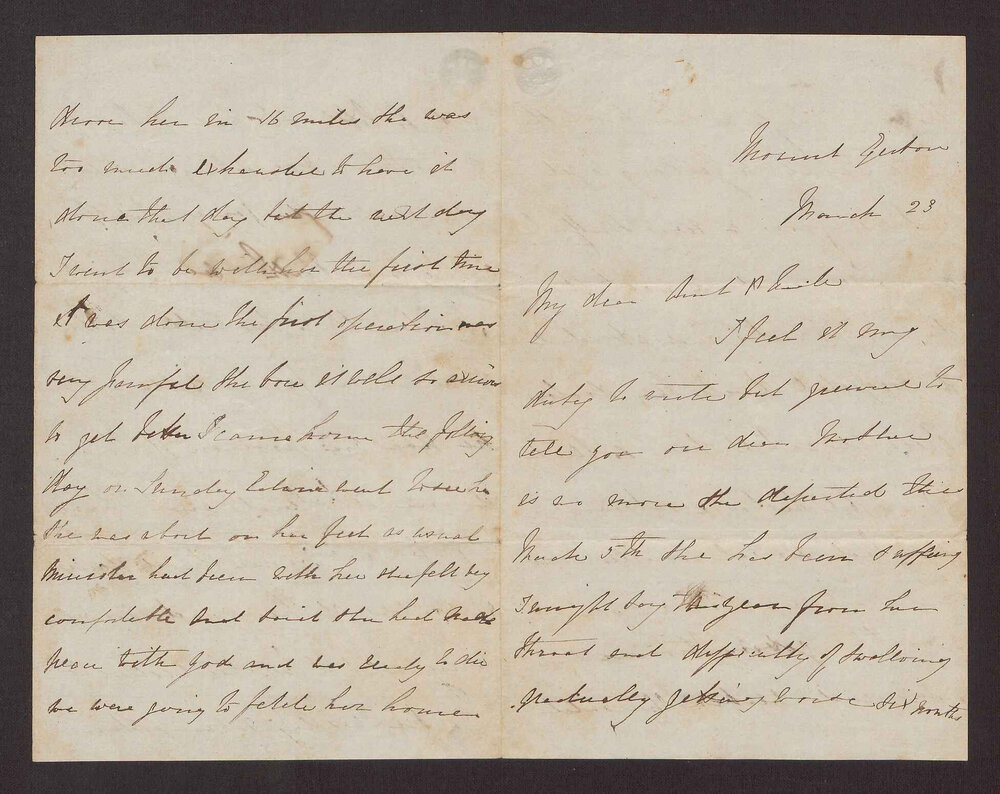 Mount
March 23
My dear Aunt & Uncle
I feel it my
duty to write but grieved to
tell you our dear Mother
is no more she departed this
March 5th she has been suffering
I might say this year from her
throat and difficulty of swallowing
gradually getting worse six months
drove her in 16 miles she was
too much exhausted to have it
done that day but the next day
I went to be with her the first time
it was done the first operation was
very painful she bore it well so
to get better I came home the
day on Sunday Edwin went to see her
she was about on her feet as usual
Minister had been with her she felt very
comfortable and said she had made
peace with god and was ready to die
we were going to fetch her home